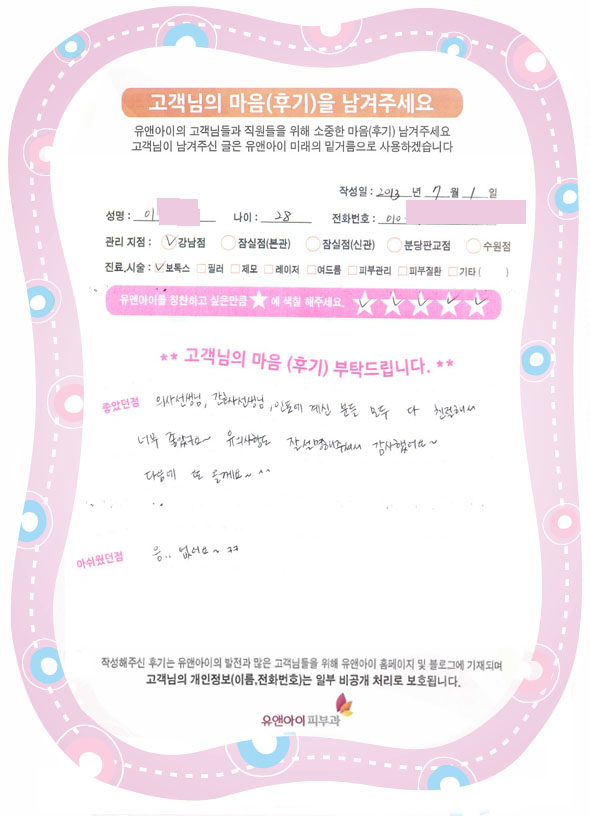 고객님의 마음(후기)을 남겨주세요
유앤아이의 고객님들과 직원들을 위해 소중한 마음(후기) 남겨주세요
고객님이 남겨주신 글은 유앤아이 미래의 밑거름으로 사용하겠습니다
작성일 : 2013 년 7 월 1 일
성명 : 이 나이 : 28 전화번호 : 010
관리 지점 : 강남점 잠실점(본관) 잠실점(신관) 분당판교점 수원점
진료,시술 : 보톡스 필러 제모 레이저 여드름 피부관리 피부질환 기타 ( )
유앤아이를 칭찬하고 싶은만큼 ★ 에 색칠 해주세요.
** 고객님의 마음 (후기) 부탁드립니다. **
좋았던점 의사선생님, 간호사선생님, 인포에 계신 분들 모두 다 친절해서
너무 좋았구요~ 유의사항도 잘 설명해주셔서 감사했어요~
다음에 또 올게요~ ^^
아쉬웠던점 음.. 없어요~ ㅋㅋ
작성해주신 후기는 유앤아이의 발전과 많은 고객님들을 위해 유앤아이 홈페이지 및 블로그에 기재되며
고객님의 개인정보(이름,전화번호)는 일부 비공개 처리로 보호됩니다.
유앤아이피부과